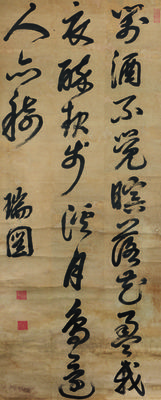 對酒不覺暝落花盈我
衣醉起步溪月鳥還
人亦稀
瑞圖